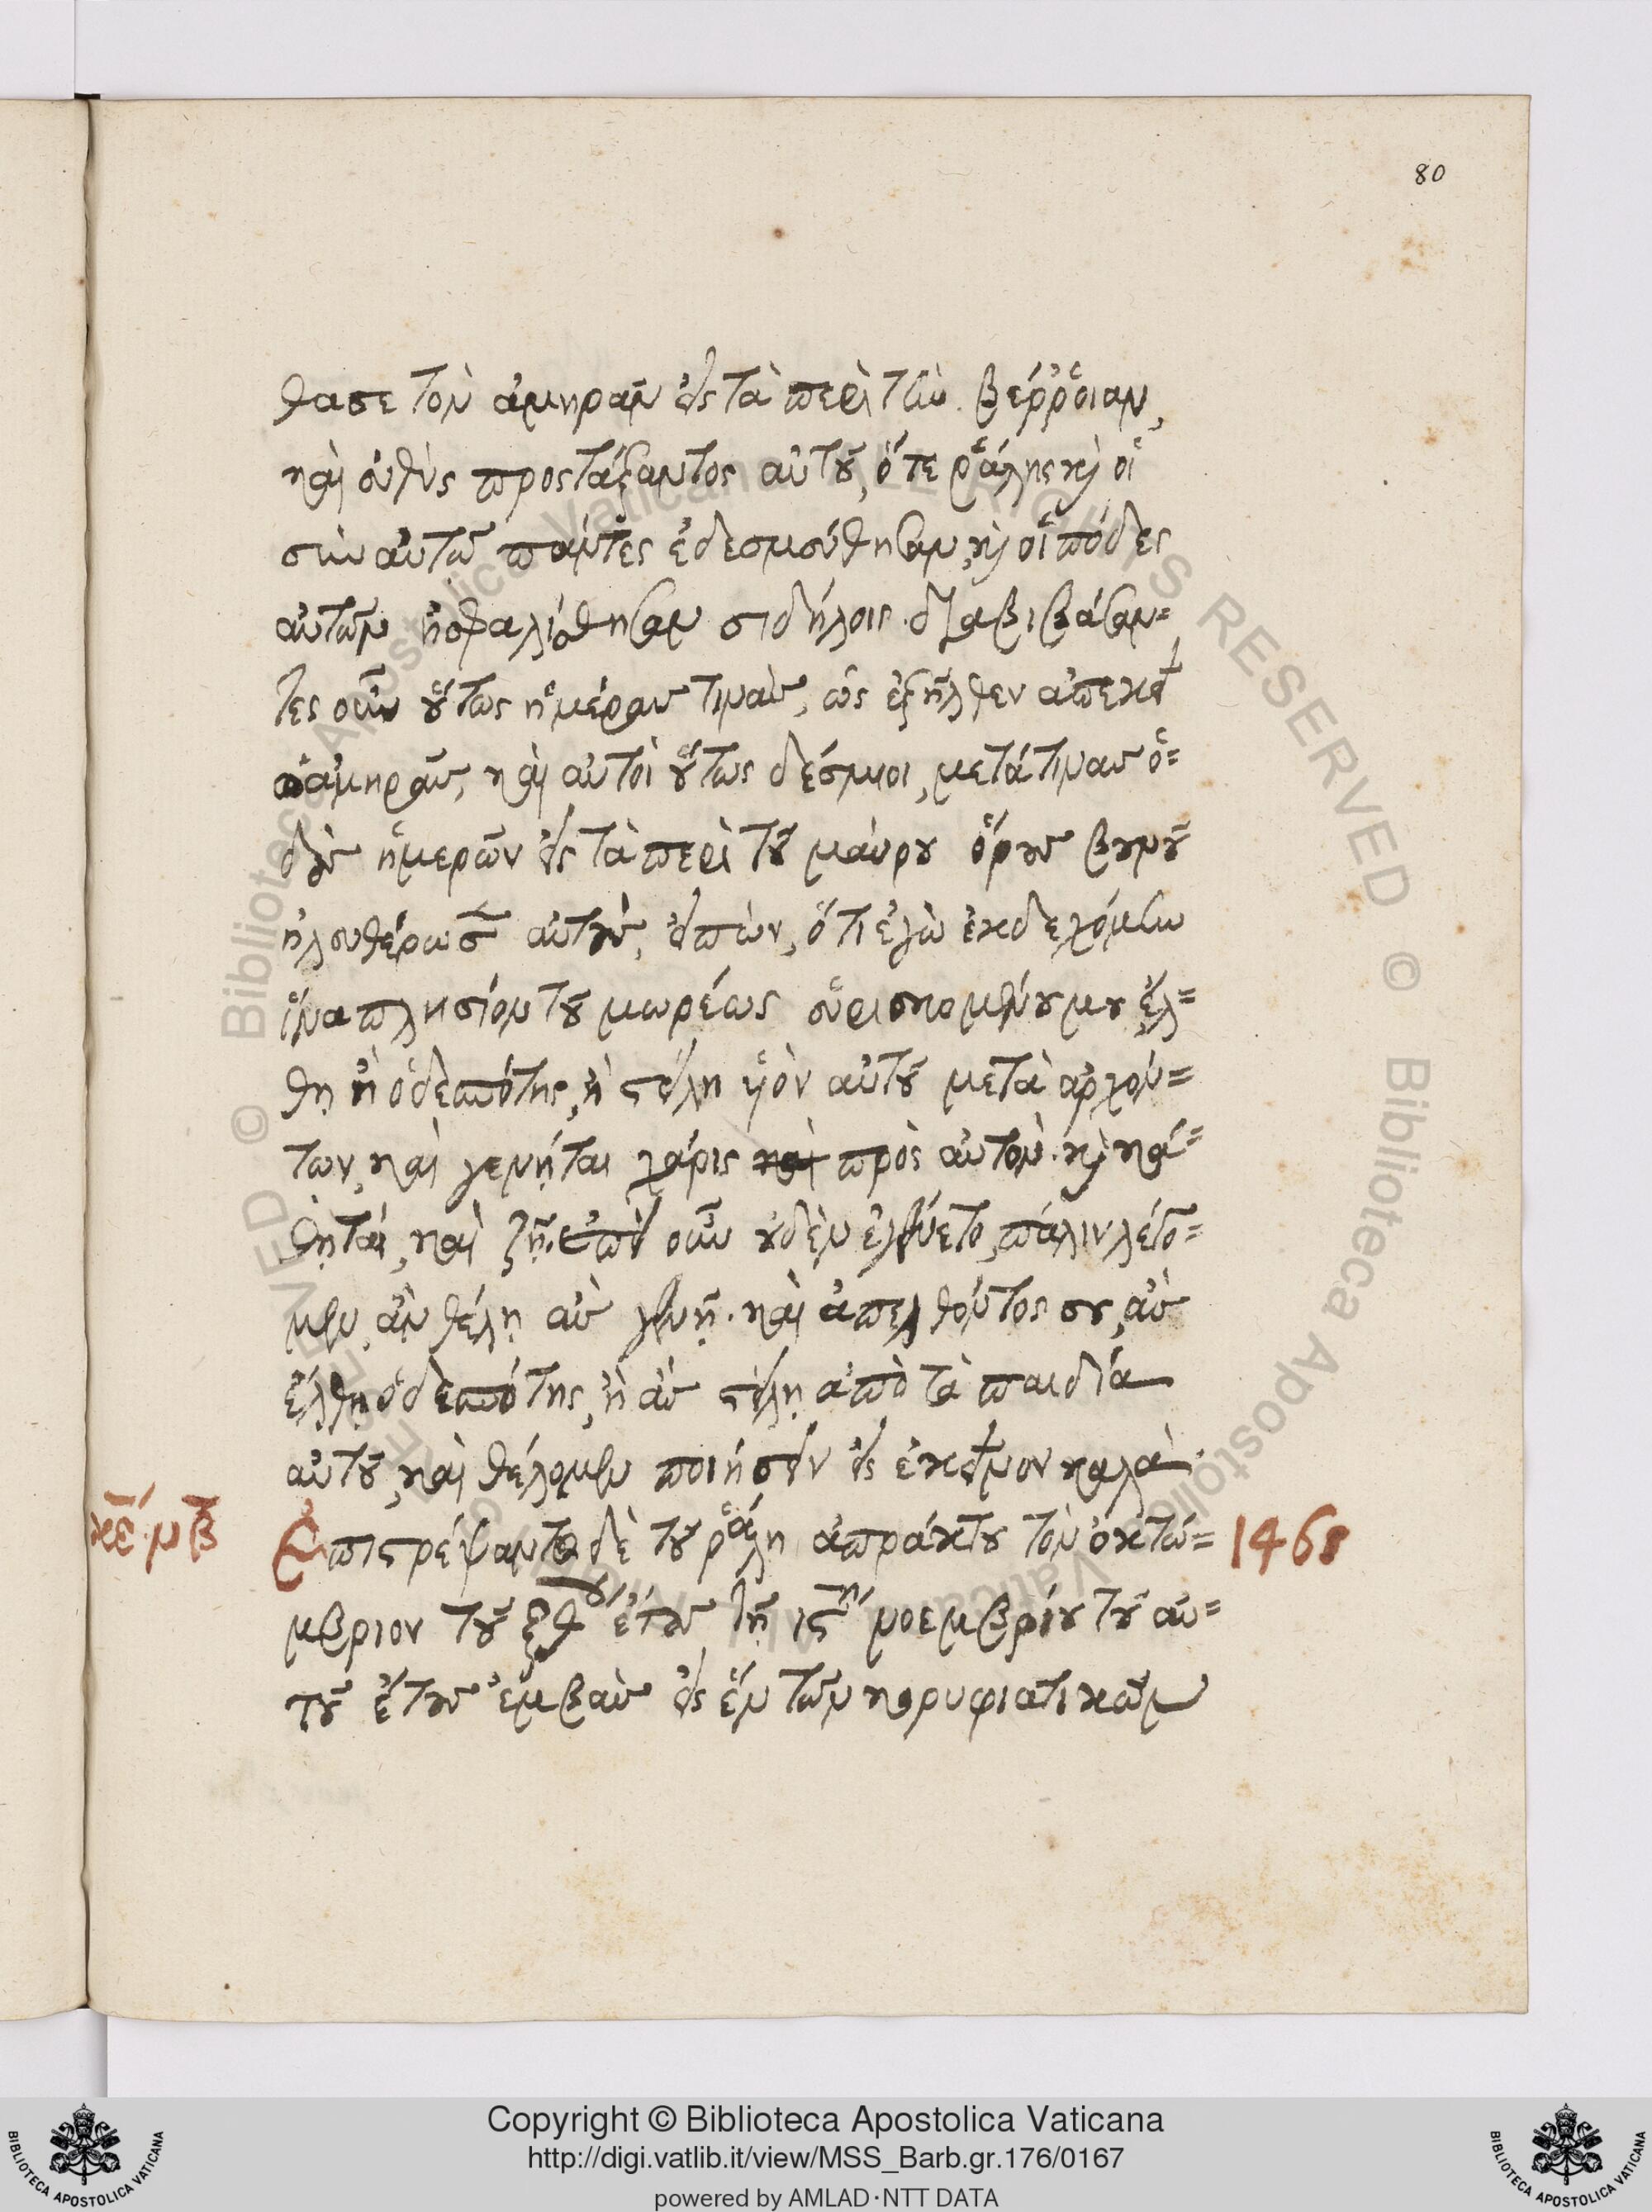 80
θασε τὸν ἀμηρᾶν εἰς τὰ περὶ τὴν βέῤῥοιαν,
καὶ εὐθὺς προστάξαντος αὐτοῦ, ὅ τε ῥάλης κỳ οἱ
σὺν αὐτῶ πάντες ἐδεσμεύθησαν, κỳ οἱ πόδες
αὐτῶν ἠσφαλίσθησαν σιδήροις. διαβιβάσαν=
τες οὖν οὕτως ἡμέραν τινὰν, ὡς ἐξῆλθεν ἀπεκεῖ
ὁ ἀμηρᾶν, καὶ αὐτοὶ οὕτως δέσμιοι, μετά τιναν ὁ=
δὸν ἡμερῶν εἰς τὰ περὶ τοῦ μαύρου ὄρους βουνοῦ
ἠλευθέρωσεν αὐτοὺς, εἰπὼν, ὅτι ἐγὼ ἐκδεχόμην
ἵνα πλησίον τοῦ μωρέως εὑρισκομένου μου ἔλ=
θη ἢ ὁ δεσπότης, ἢ στείλη υἱὸν αὐτοῦ μετὰ ἀρχόν=
των, καὶ γενῆται χάρις πρὸς αὐτὸν. κỳ κά=
θηται, καὶ ζῆ. ἐπεὶ οὖν οὐδὲν ἐγένετο, πάλιν λέγο=
μεν, ἂν θέλη ἂν γενῆ. καὶ ἀπελθόντος σου, ἂν
ἔλθη ὁ δεσπότης, ἢ ἂν στείλη ἀπὸ τὰ παιδία
αὐτοῦ, καὶ θέλομεν ποιήσειν εἰς ἐκεῖνον καλὰ.
κε. μβ
Ἐπιστρέψαντος δὲ τοῦ ῥάλη ἀπράκτου τὸν ὀκτώ=
1468
μβριον τοῦ ξθου ἔτους τῆ ιςη νοεμβρίου τοῦ αὐ=
τοῦ ἔτους ἐμβὰς εἰς ἓν τῶν κορυφιατικῶν
Copyright © Biblioteca Apostolica Vaticana
http://digi.vatlib.it/view/MSS_Barb.gr.176/0167
powered by AMLAD·NTT DATA